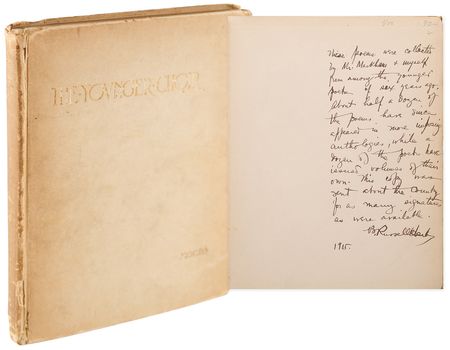 THE YOUNGER CHOIR
These poems were collected
by Mr. Markham & myself
from among the younger
poets of six years ago.
About half a dozen of
the poems have since
appeared in more imposing
anthologies, while a
dozen of the poets have
issued volumes of their
own. This copy was
sent about the country
for as many signatures
as were available.
B. Russell Herts
1915.